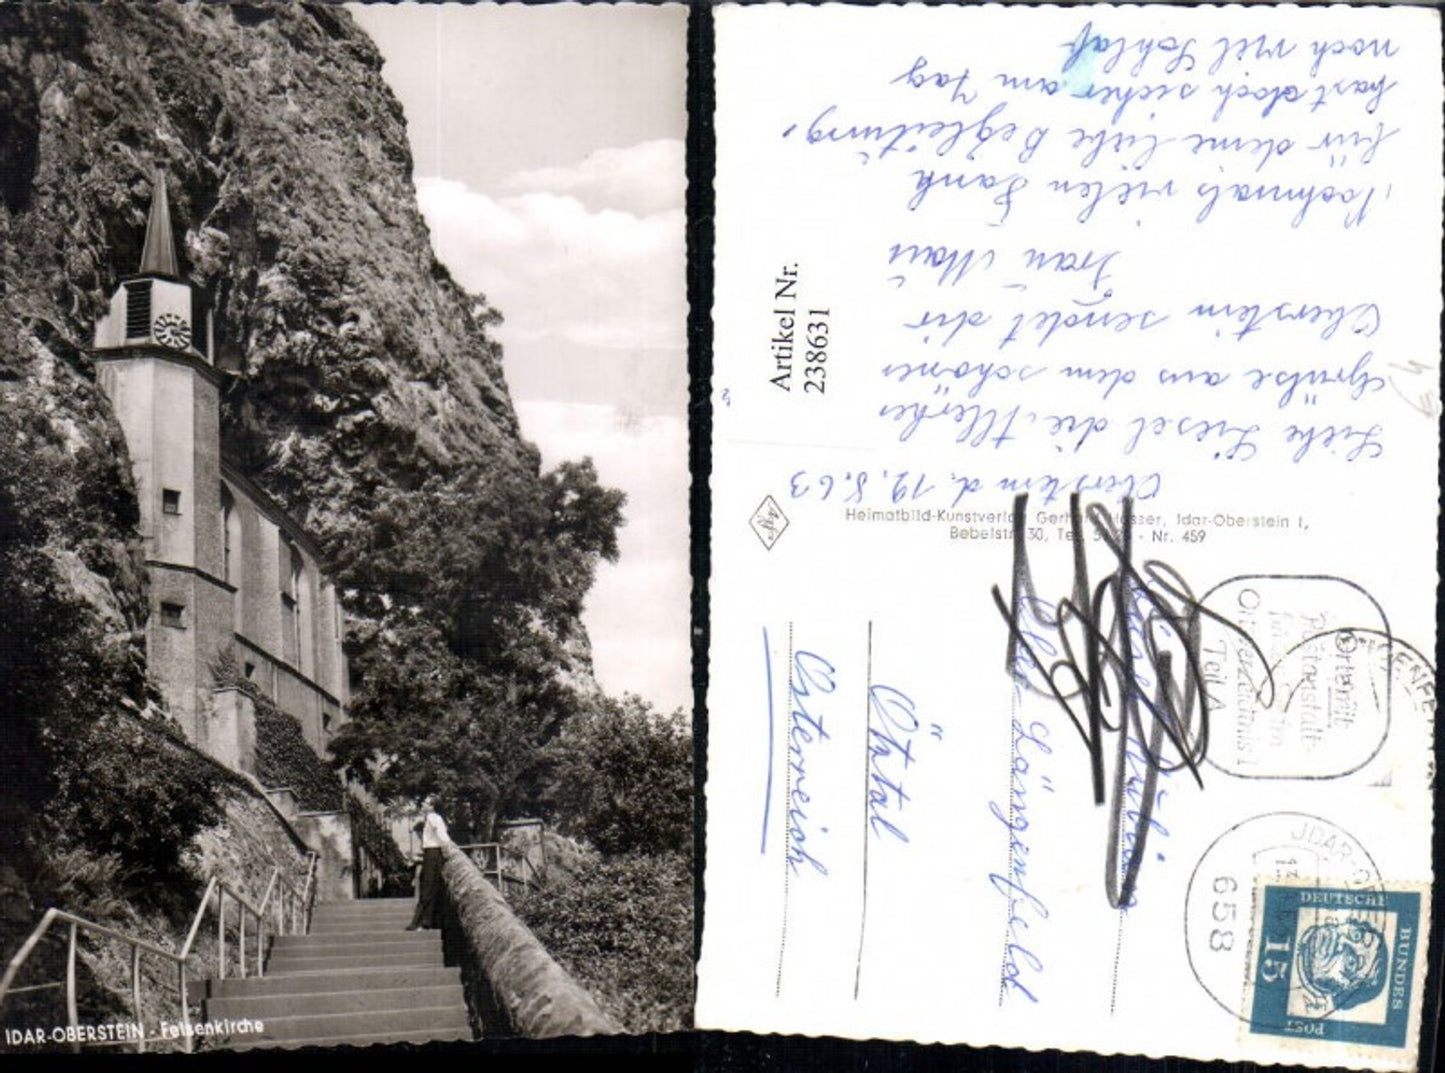 IDAR-OBERSTEIN - Felsenkirche
Artikel Nr.
238631
Oberstein d. 12.8.63
Liebe Liesel die Allerher
Grüße aus dem schönen
Oberstein sendet dir
Frau Maui
Nochmals vielen Dank
für deine liebe Begleitung,
hast doch sicher am Tag
noch viel Schlaf
Agfa
Heimatbild-Kunstverlag Gerhard Mosser, Idar-Oberstein 1,
Bebelstr. 30, Tel. - Nr. 459
Längenfeld
Ötztal
Österreich
Ortsverzeichnis I
Teil A
658
DEUTSCHE
BUNDES
POST
15